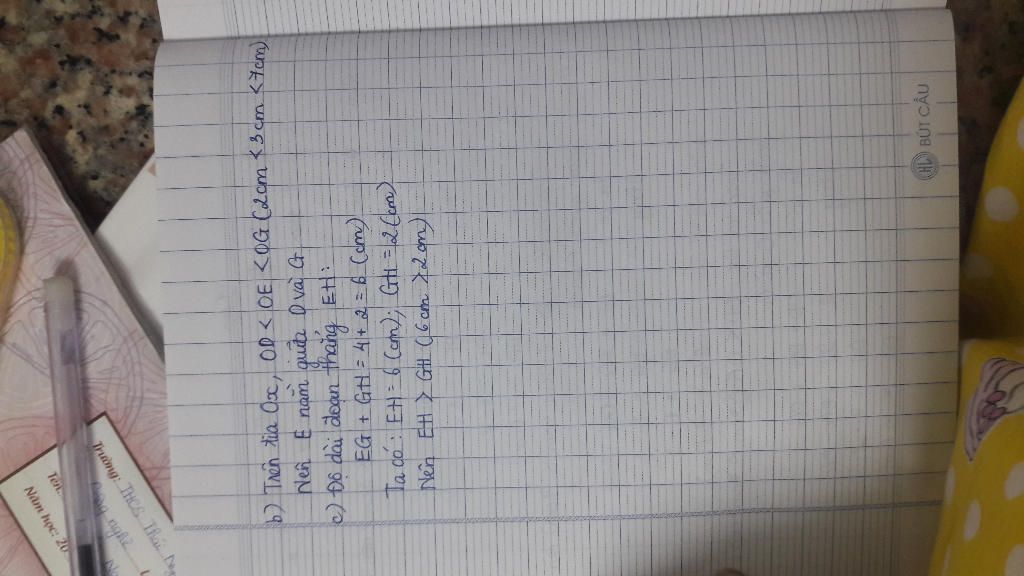 b) Trên tia Ox, OD < OE < OG (2cm < 3cm < 7cm)
Nên E nằm giữa D và G
c) Độ dài đoạn thẳng EH:
EG + GH = 4 + 2 = 6 (cm)
Ta có: EH = 6 (cm); GH = 2 (cm)
Nên EH > GH (6cm > 2cm)
BÚT CẦU
Trường: THCS
Tên:
Năm học: 20